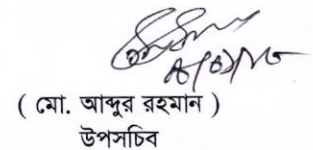 ( মো. আব্দুর রহমান )
উপসচিব